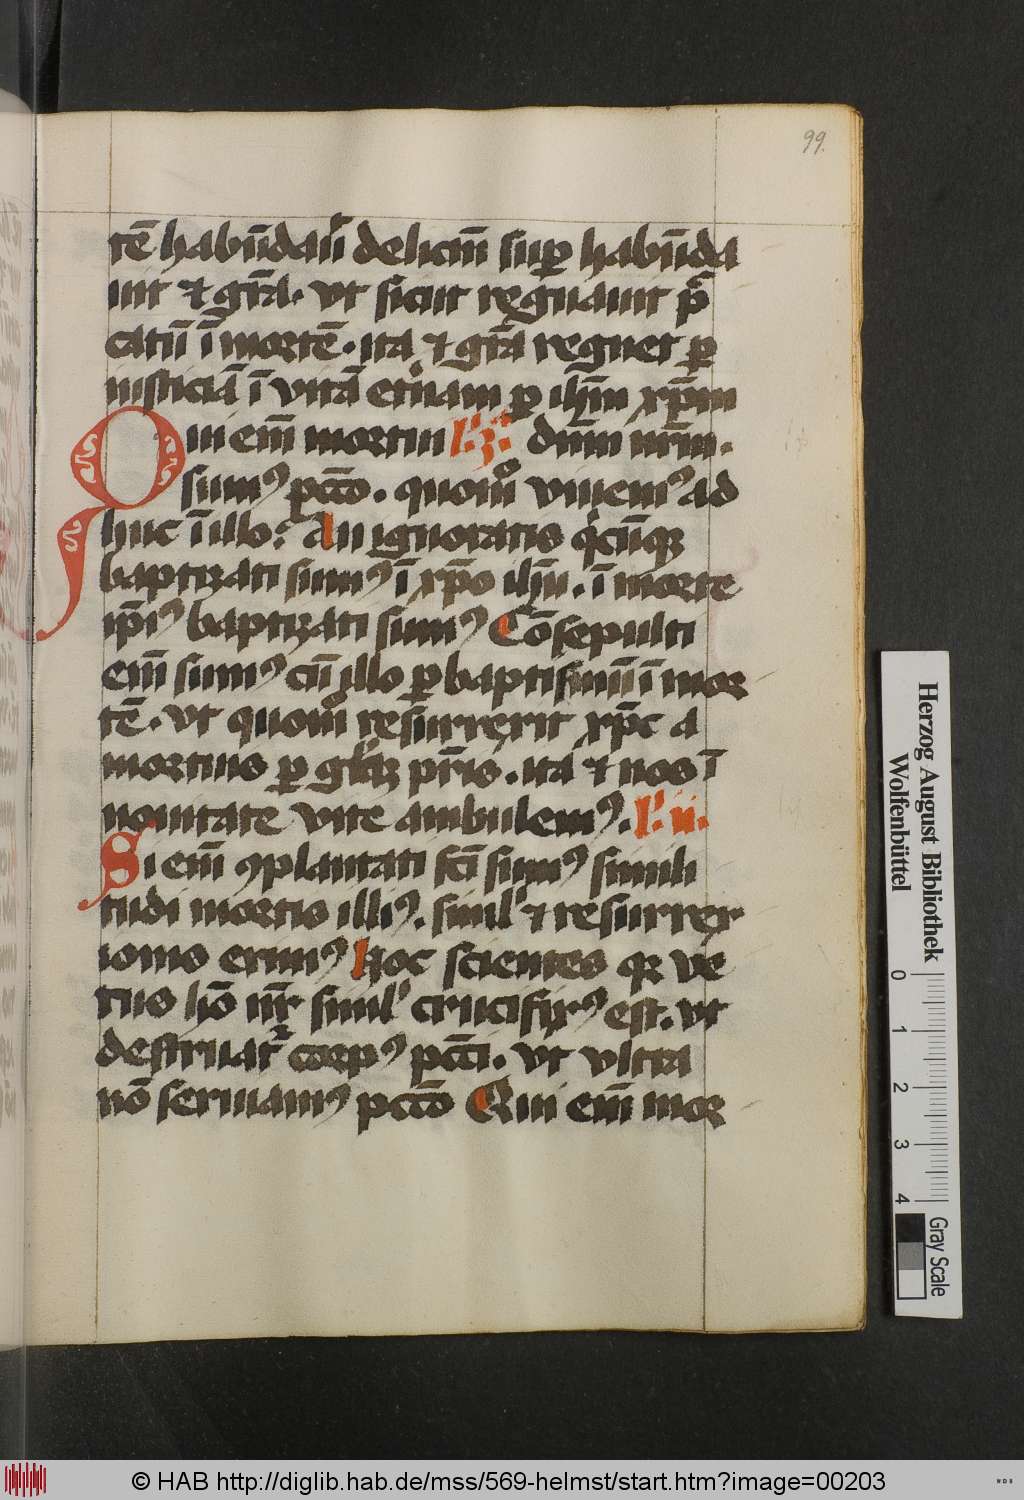 99.
tē habūdauit delictū suꝑ habūda
uit ⁊ grā. vt sicut regnauit pec
catū ī mortē. ita ⁊ grā regnet ꝑ
iusticiā ī vitā et̄nam ꝑ ihm̄ xp̄m
Ui em̄ mortui l̓.ʒ. dnm̄ nrm̄.
sumꝰ pctō. quomo viuemꝰ ad
huc ī illo? An ignoratis qͥcūqꝫ
baptizati sumꝰ ī xp̄o ihū. ī morte
ip̄iꝰ baptizati sumꝰ Cōsepulti
em̄ sumꝰ cū illo ꝑ baptismū ī mor
tē. vt quomo resurrexit xp̄c a
mortuis ꝑ gl̓aꝫ pr̄is. ita ⁊ nos ī
nouitate vite ambulemꝰ. l̓. ii.
Si em̄ ꝯplantati fcī sumꝰ simili
tudi mortis illiꝰ. simil̓ ⁊ resurrex
ionis erimꝰ Hoc scientes qꝛ ve
tus hō nr̄ simil̓ crucifixꝰ est. vt
destruatr̄ corpꝰ pctī. vt vltra
nō seruiamꝰ pctō Qui em̄ mor
Herzog August Bibliothek
Wolfenbüttel
0 1 2 3 4
Gray Scale
© HAB http://diglib.hab.de/mss/569-helmst/start.htm?image=00203